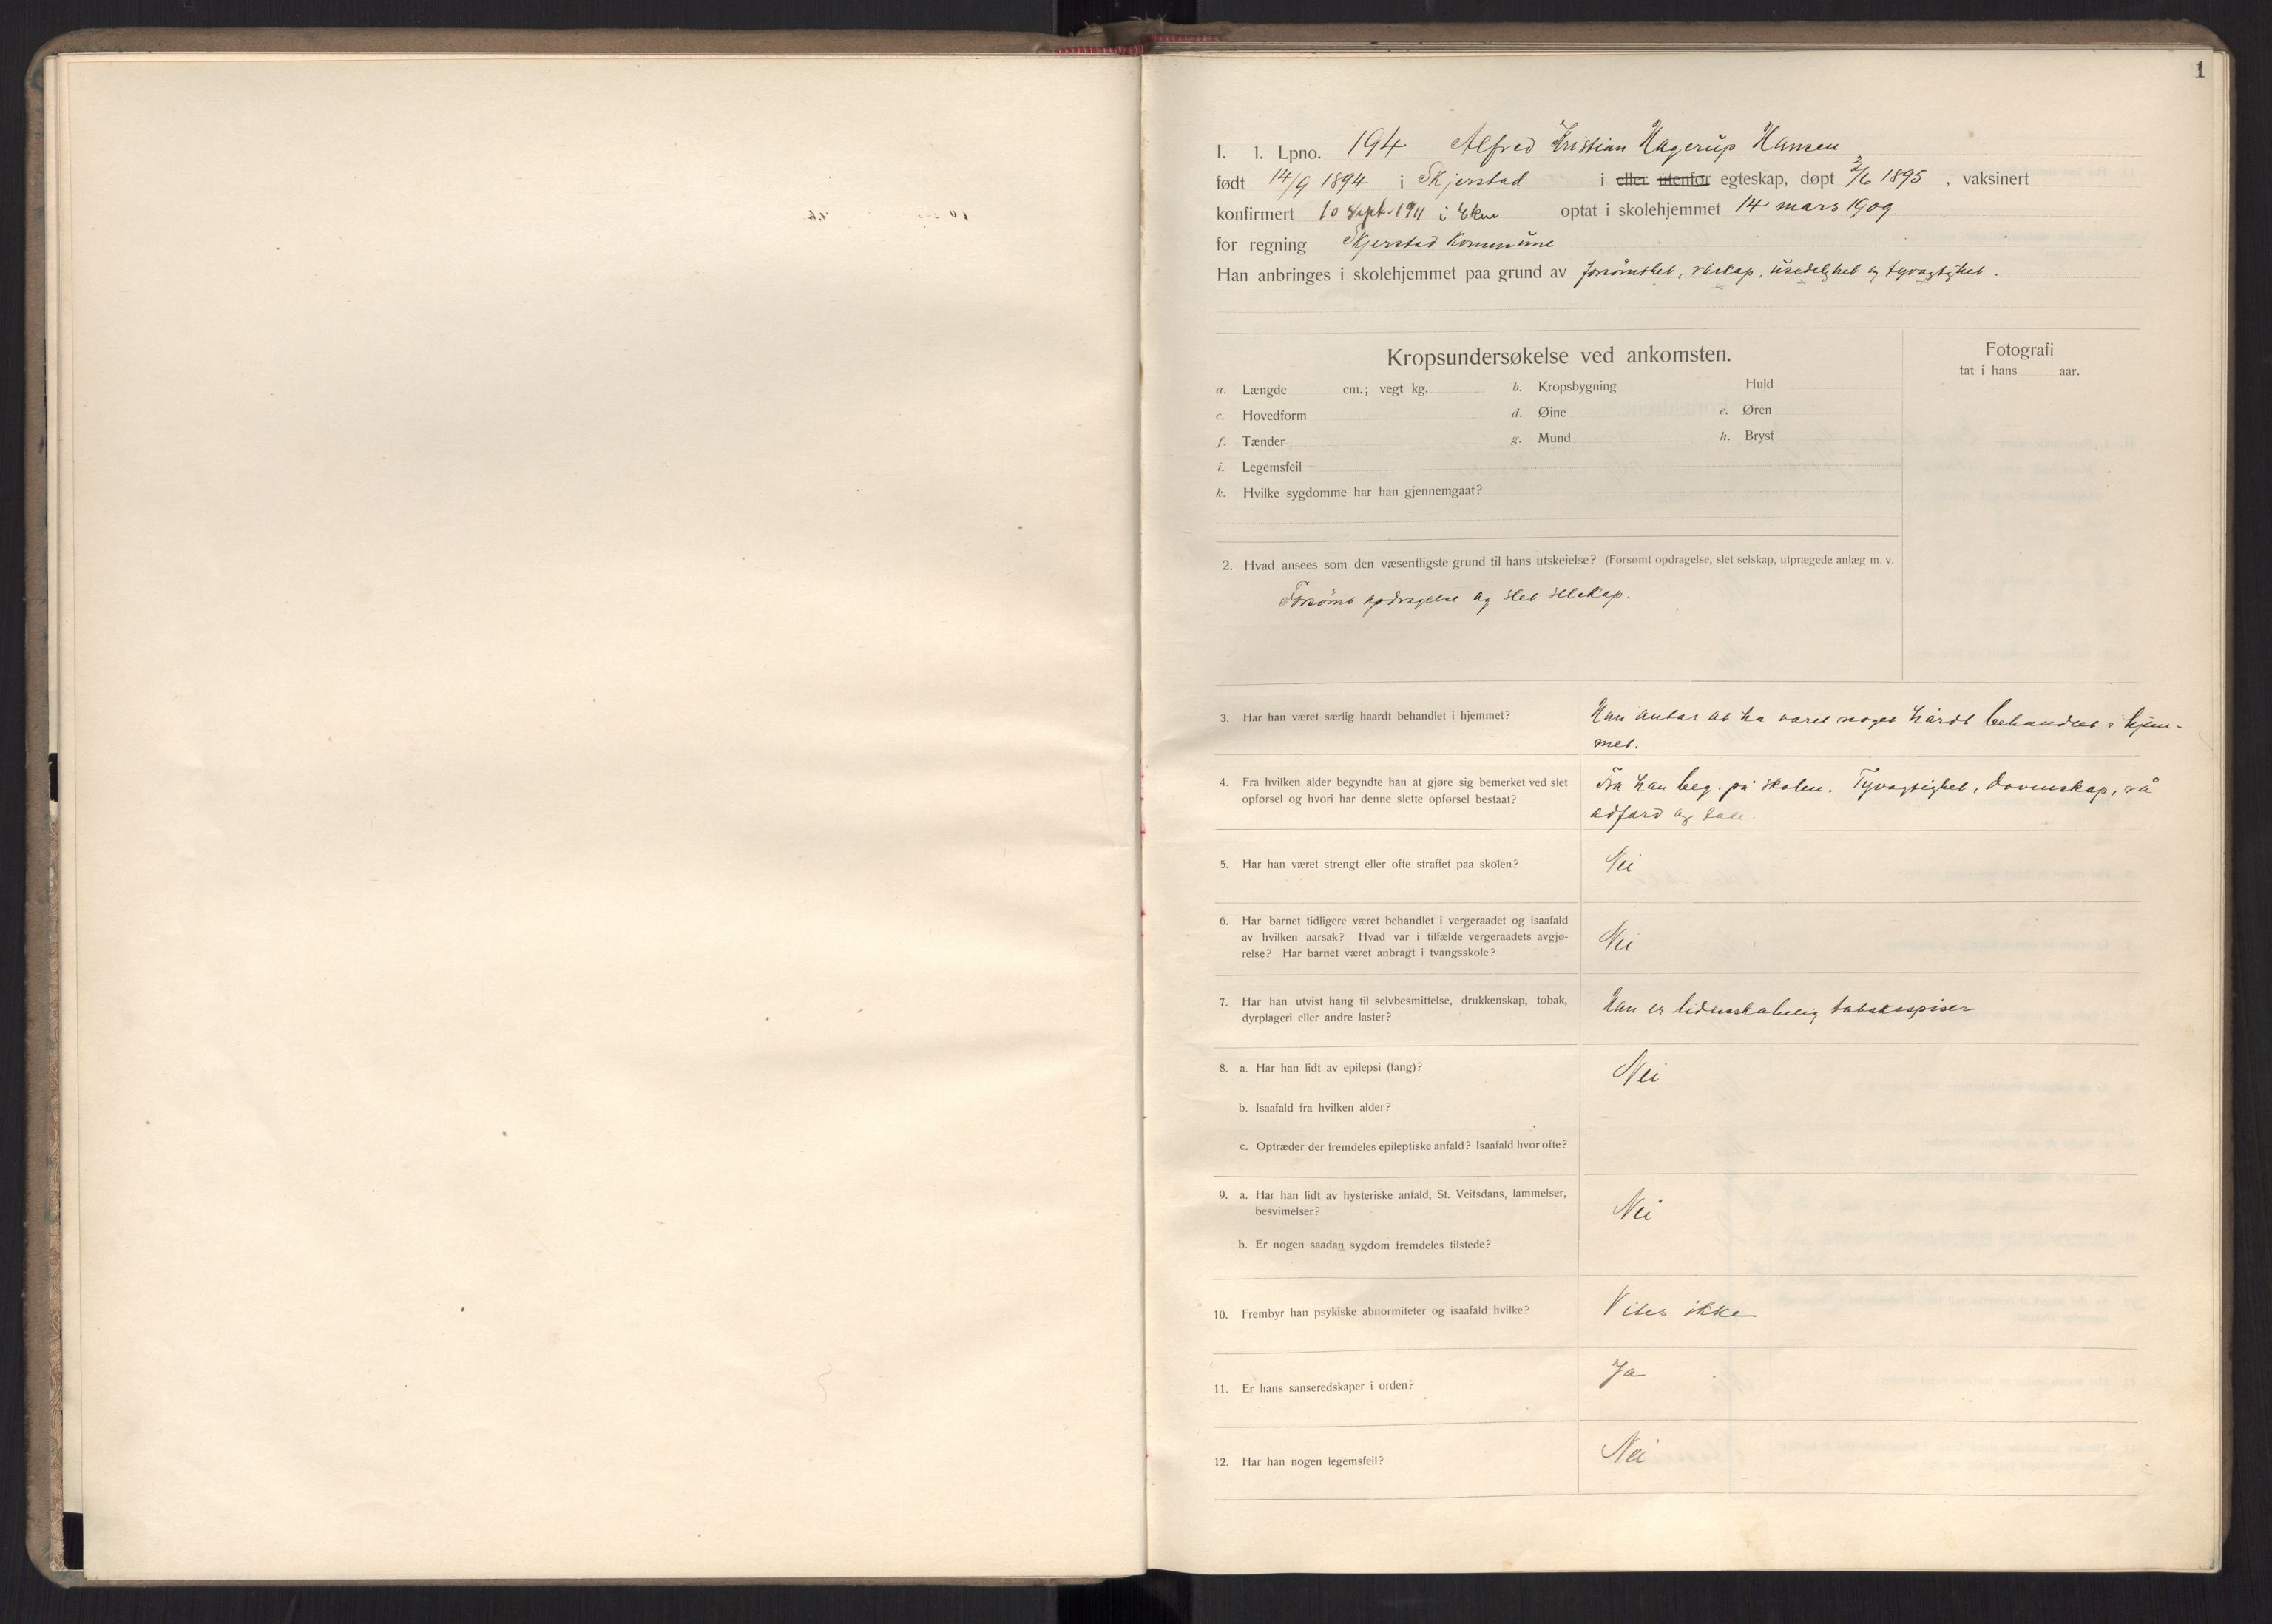 1
I. 1. Lpno. 194 Alfred Kristian Hagerup Hansen
født 14/9 1894 i Skjerstad i eller utenfor egteskap, døpt 2/6 1895, vaksinert
konfirmert 10 Sept. 1911 i Ekne optat i skolehjemmet 14 mars 1909.
for regning Skjerstad Kommune
Han anbringes i skolehjemmet paa grund av forsømthet, råskap, usedelighet og tyvagtighet.
Kropsundersøkelse ved ankomsten.
Fotografi
tat i hans aar.
a. Længde cm.; vegt kg. b. Kropsbygning Huld
c. Hovedform d. Øine e. Øren
f. Tænder g. Mund h. Bryst
i. Legemsfeil
k. Hvilke sygdomme har han gjennemgaat?
2. Hvad ansees som den væsentligste grund til hans utskeielse? (Forsømt opdragelse, slet selskap, utprægede anlæg m. v.
Forsømt opdragelse og slet selskap.
3. Har han været særlig haardt behandlet i hjemmet?
Han antas at ha været noget hårdt behandlet i hjem-
met.
4. Fra hvilken alder begyndte han at gjøre sig bemerket ved slet
opførsel og hvori har denne slette opførsel bestaat?
Fra han beg. på skolen. Tyvagtighet, dovenskap, rå
adfærd og tale.
5. Har han været strengt eller ofte straffet paa skolen?
Nei
6. Har barnet tidligere været behandlet i vergeraadet og isaafald
av hvilken aarsak? Hvad var i tilfælde vergeraadets avgjø-
relse? Har barnet været anbragt i tvangsskole?
Nei
7. Har han utvist hang til selvbesmittelse, drukkenskap, tobak,
dyrplageri eller andre laster?
Han er lidenskabelig tobaksspiser
8. a. Har han lidt av epilepsi (fang)?
Nei
b. Isaafald fra hvilken alder?
c. Optræder der fremdeles epileptiske anfald? Isaafald hvor ofte?
9. a. Har han lidt av hysteriske anfald, St. Veitsdans, lammelser,
besvimelser?
Nei
b. Er nogen saadan sygdom fremdeles tilstede?
10. Frembyr han psykiske abnormiteter og isaafald hvilke?
Vites ikke
11. Er hans sanseredskaper i orden?
Ja
12. Har han nogen legemsfeil?
Nei